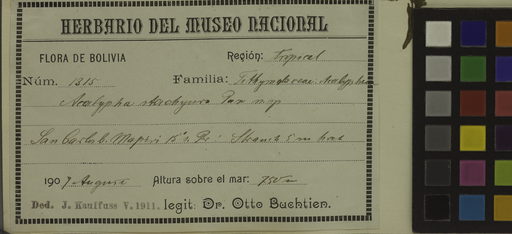 HERBARIO DEL MUSEO NACIONAL
FLORA DE BOLIVIA Región: Tropical
Núm. 1815 Familia:
Acalypha stachyura Pax n sp
San Carlos b. Mapiri
1907, August Altura sobre el mar: 750 m
Ded. J. Kauffuss V. 1911. legit: Dr. Otto Buchtien.